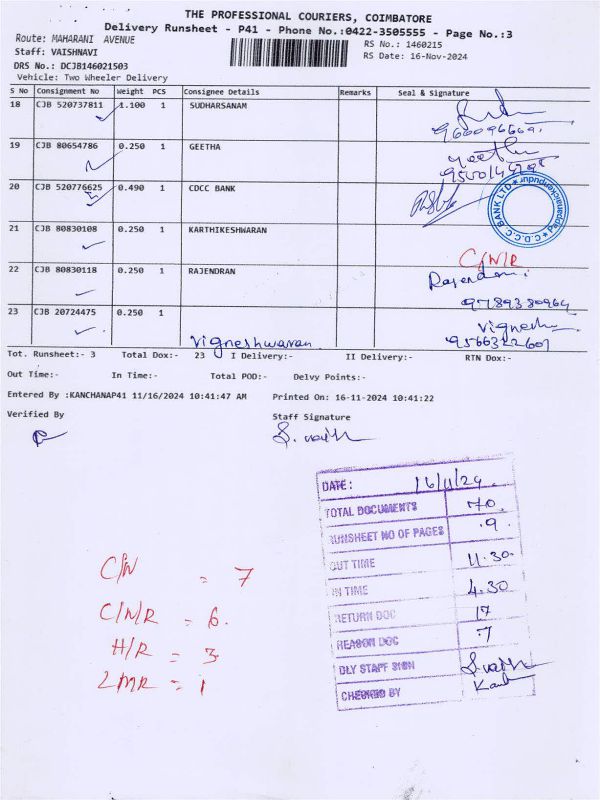 THE PROFESSIONAL COURIERS, COIMBATORE
Delivery Runsheet - P41 - Phone No.:0422-3505555 - Page No.:3
Route: MAHARANI AVENUE
RS No.: 1460215
Staff: VAISHNAVI
RS Date: 16-Nov-2024
DRS No.: DCJB146021503
Vehicle: Two Wheeler Delivery
S No Consignment No Weight PCS Consignee Details Remarks Seal & Signature
18 CJB 520737811 1.100 1 SUDHARSANAM
19 CJB 80654786 0.250 1 GEETHA
Geetha
20 CJB 520776625 0.490 1 CDCC BANK
C.D.C.C. BANK LTD
21 CJB 80830108 0.250 1 KARTHIKESHWARAN
C/N/R
22 CJB 80830118 0.250 1 RAJENDRAN
Rajendran
9789380964
23 CJB 20724475 0.250 1
Vigneshwaran
Vignesh
9566322601
Tot. Runsheet:- 3 Total Dox:- 23 I Delivery:- II Delivery:- RTN Dox:-
Out Time:- In Time:- Total POD:- Delvy Points:-
Entered By :KANCHANAP41 11/16/2024 10:41:47 AM Printed On: 16-11-2024 10:41:22
Verified By Staff Signature
S. vaish
DATE: 16/11/24.
TOTAL DOCUMENTS 70.
RUNSHEET NO OF PAGES .9.
OUT TIME 11.30.
IN TIME 4.30
RETURN DOC 17
REASON DOC 7
DLY STAFF SIGN S.vaish
CHECKED BY
C/N = 7
C/N/R = 6.
H/R = 3
LMR = 1